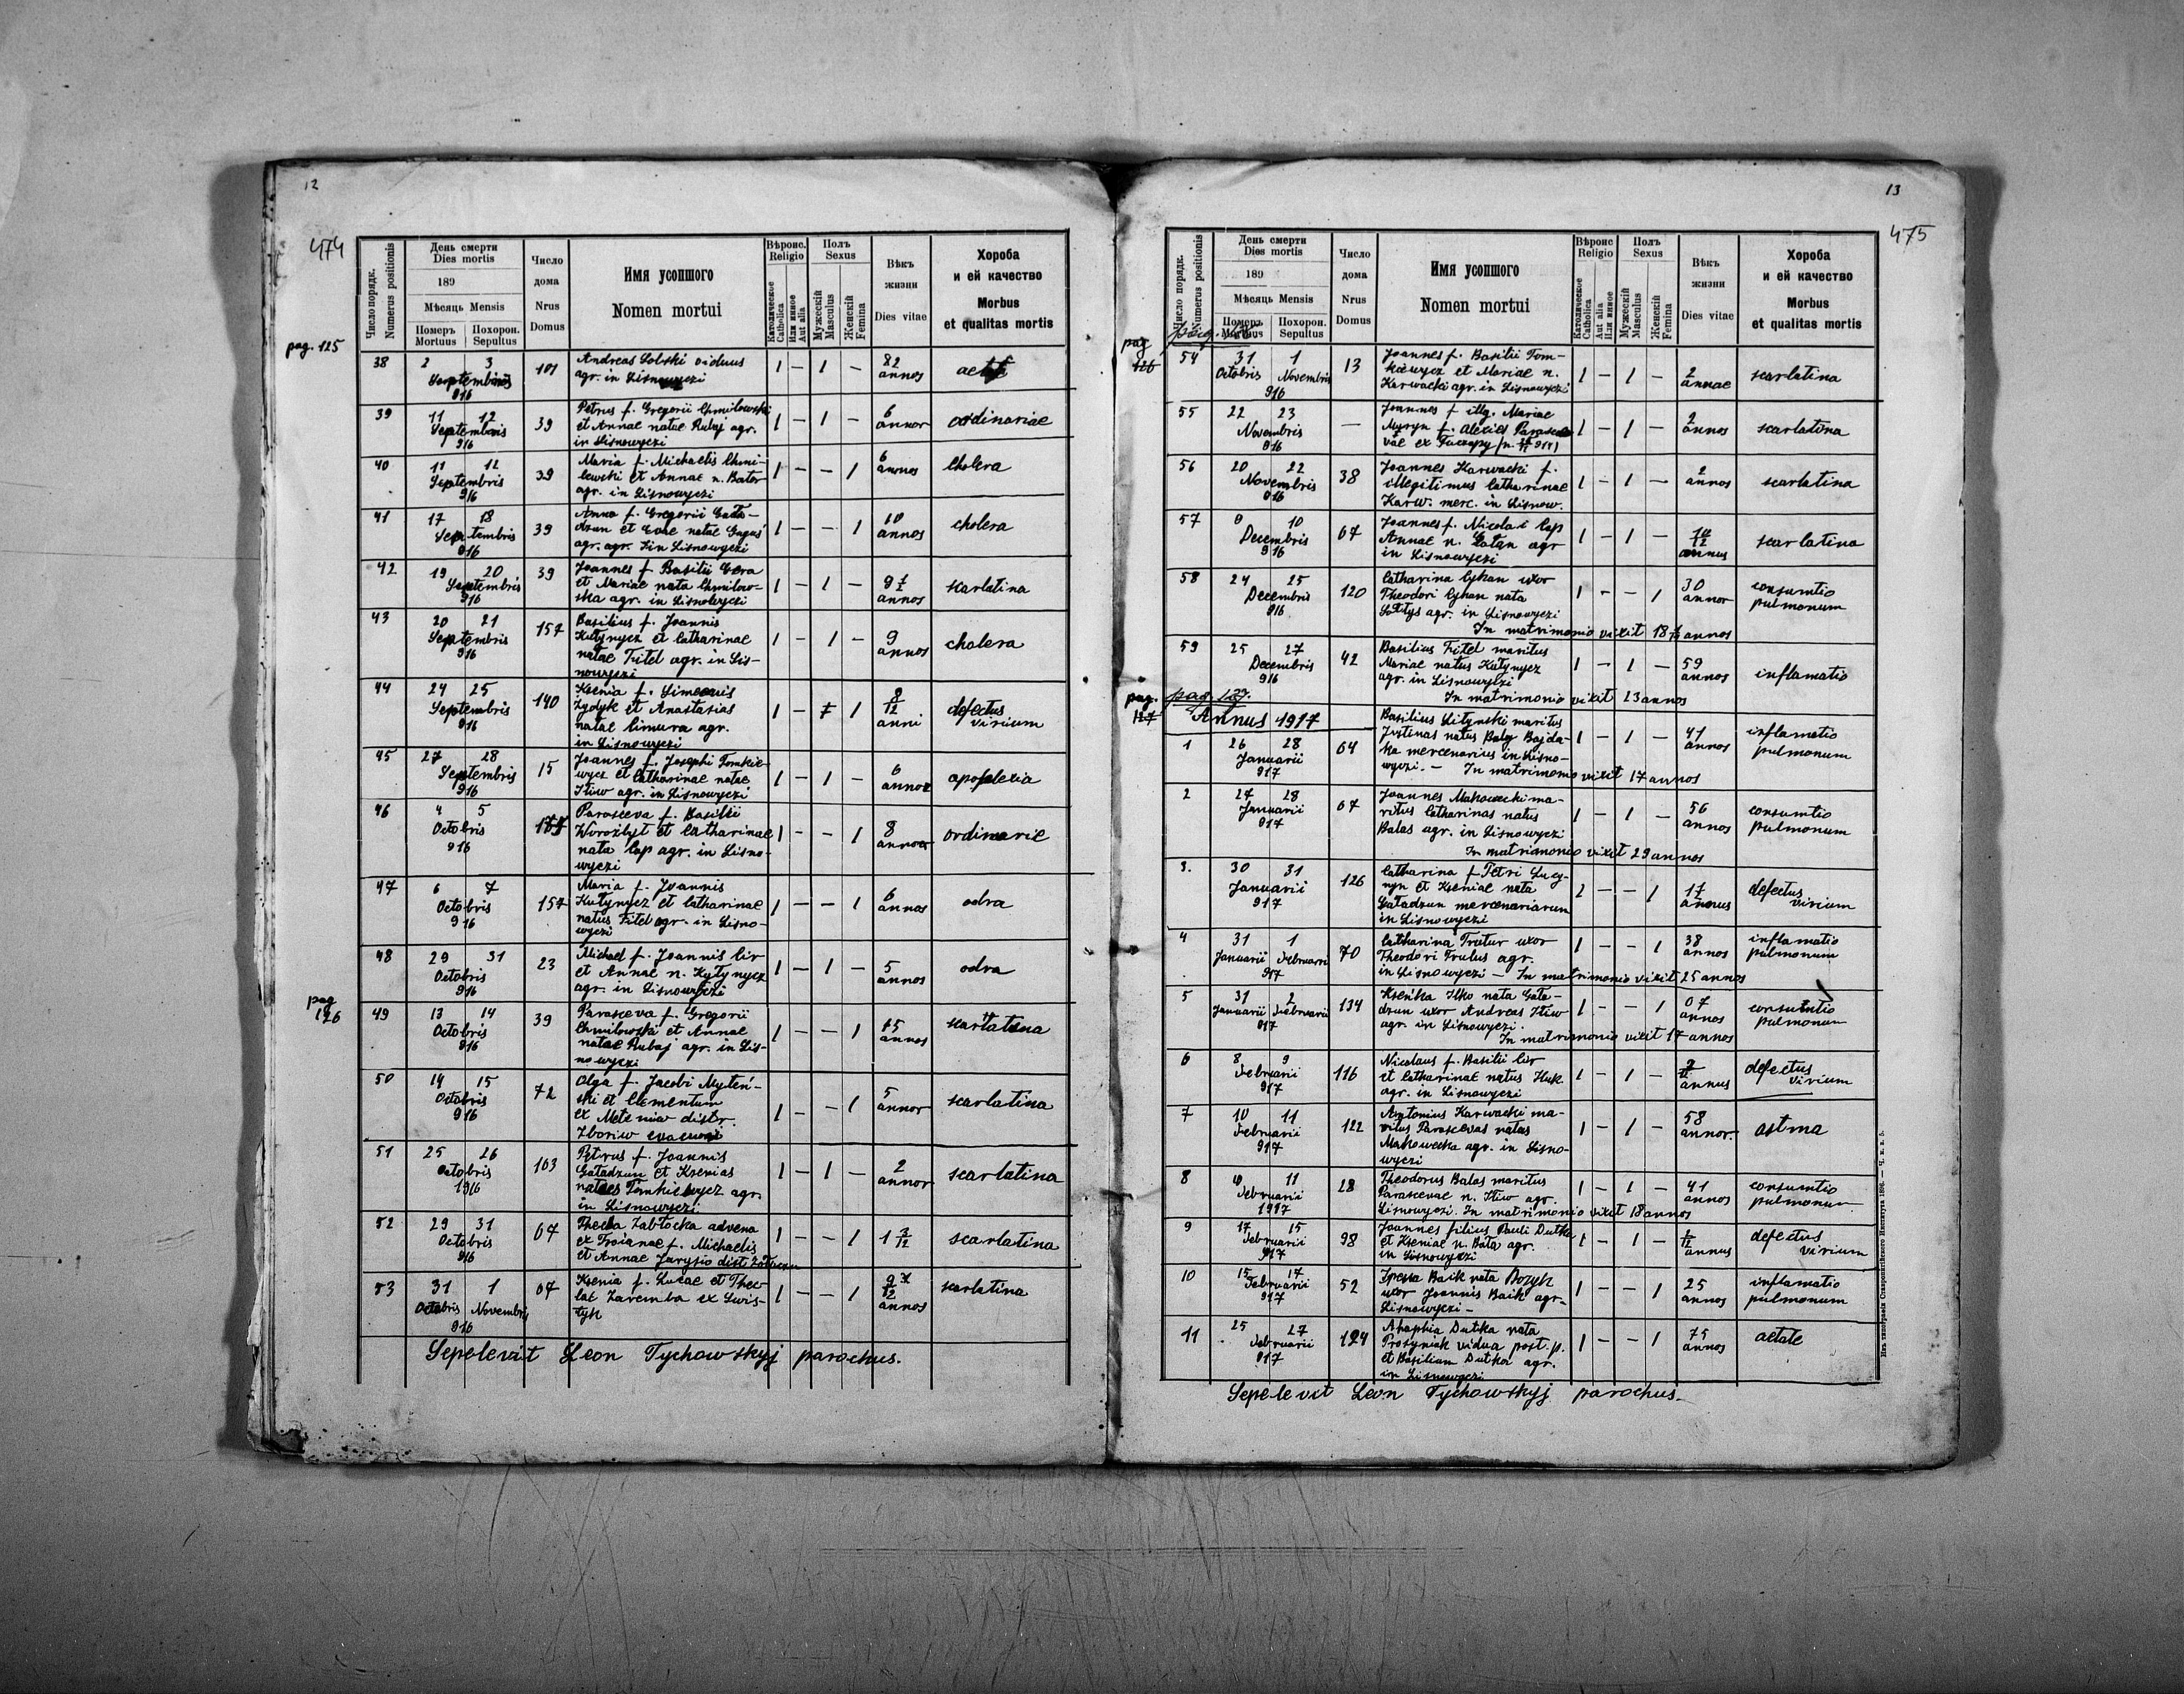 12
474
Число порядк.
Numerus positionis
День смерти
Dies mortis
189
Мѣсяць Mensis
Померъ Mortuus
Похорон. Sepultus
Число дома
Nrus Domus
Имя усопшого
Nomen mortui
Вѣроис.
Religio
Католическое Catholica
Или инное Aut alia
Полъ
Sexus
Мужескій Masculus
Женскій Femina
Вѣкъ жизни
Dies vitae
Хороба
и ей качество
Morbus
et qualitas mortis
pag. 125
38 2 3 Septembris 916 101 Andreas Sobski viduus
agr. in Lisnowyczi 1 — 1 — 82 annos
39 11 12 Septembris 916 39 Petrus f. Gregorii Chmilowski
et Annae natae Rubaj agr.
in Lisnowyczi 1 — 1 — 6 annor ordinariae
40 11 12 Septembris 916 39 Maria f. Michaelis Chmi-
lewski et Annae n. Bator
agr. in Lisnowyczi 1 — — 1 6 annos Cholera
41 17 18 Septembris 916 39 Anna f. Gregorii Gała-
dzun et Evae natae
agr. agr. in Lisnowyczi 1 — — 1 10 annos cholera
42 19 20 Septembris 916 39 Joannes f. Basilii
et Mariae nata Chmilow-
ska agr. in Lisnowyczi 1 — 1 — annos skarlatina
43 20 21 Septembris 916 157 Basilius f. Joannis
Kutynycz et Catharinae
natae Fitel agr. in Lis-
nowyczi 1 — 1 — 9 annos cholera
44 24 25 Septembris 916 140 Ksenia f. Simeonis
Zydyk et Anastasias
natae Cimura agr.
in Lisnowyczi 1 — 1 8/12 anni defectus
virium
45 27 28 Septembris 916 15 Joannes f. Josephi Tomkie-
wycz et Catharinae natae
Itiw agr. in Lisnowyczi 1 — 1 — 6 annor apoplexia
46 4 5 Octobris 916 Parasceva f. Basilii
Worożbyt et Catharinae
nata Cap agr. in Lisno-
wyczi 1 — — 1 8 annos ordinarie
47 6 7 Octobris 916 157 Maria f. Joannis
Kutynycz et Catharinae
natus Fitel agr. in Lisno-
wyczi 1 — — 1 6 annos odra
48 29 31 Octobris 916 23 Michael f. Joannis Cir
et Annae n. Kutynycz
agr. in Lisnowyczi 1 — 1 — 5 annos odra
pag 126
49 13 14 Octobris 916 39 Parasceva f. Gregorii
Chmilowski et Annae
natae Rubaj agr. in Lis-
nowyczi 1 — — 1 annos scarlatina
50 14 15 Octobris 916 72 Olga f. Jacobi Myteń-
ski et Clementum
ex Meteniw distr.
Zboriw 1 — — 1 5 annor scarlatina
51 25 26 Octobris 1916 103 Petrus f. Joannis
Gaładzun et Ksenias
nataes Tomkiewycz agr.
in Lisnowyczi 1 — 1 — 2 annor scarlatina
52 29 31 Octobris 916 67 Thecla Zabłocka advena
ex Troianae f. Michaelis
et Annae Jarysio dist. 1 — — 1 1 3/12 scarlatina
53 31 1 Octobris Novembris 916 67 Ksenia f. Lucae et Thec-
lae Zaremba ex Swis-
tyk 1 — — 1 annos scarlatina
Sepelevit Leon Tychowskyj parochus.
13
475
Число порядк.
Numerus positionis
День смерти
Dies mortis
189
Мѣсяць Mensis
Померъ Mortuus
Похорон. Sepultus
Число дома
Nrus Domus
Имя усопшого
Nomen mortui
Вѣроис
Religio
Католическое Catholica
Aut alia Или инное
Полъ
Sexus
Мужескій Masculus
Женскій Femina
Вѣкъ жизни
Dies vitae
Хороба
и ей качество
Morbus
et qualitas mortis
pag 126
54 31 1 Octobris Novembris 916 13 Joannes f. Basilii Tom-
kiewycz et Mariae n.
Karwacki agr. in Lisnowyczi 1 — 1 — 2 annae scarlatina
55 22 23 Novembris 916 — Joannes f. illg. Mariae
Myzyn f. Alexies Parasce-
vae ex 1 — 1 — 2 annos scarlatina
56 20 22 Novembris 916 38 Joannes Karwacki f.
illegitimus Catharinae
Karw. merc. in Lisnow. 1 — 1 — 2 annos scarlatina
57 9 10 Decembris 916 67 Joannes f. Nicolai Cap
Annae n. agr
in Lisnowyczi 1 — 1 — 10/12 annus scarlatina
58 24 25 Decembris 916 120 Catharina Cyhan uxor
Theodori Cyhan nata
Sołtys agr. in Lisnowyczi 1 — — 1 30 annor consumtio
pulmonum
In matrimonio vixit annos
59 25 27 Decembris 916 42 Basilius Fitel maritus
Mariae natus Kutynycz
agr. in Lisnowyczi 1 — 1 — 59 annos inflamatio
In matrimonio vixit 23 annos
pag. 127
Annus 1917
1 26 28 Januarii 917 64 Basilius Litynski maritus
Justinas natus Bajda-
ka mercenarius in Lisno-
wyczi. — In matrimonio vixit 17 annos 1 — 1 — 41 annos inflamatio
pulmonum
2 27 28 Januarii 917 67 Joannes Makowecki ma-
ritus Catharinas natus
Balas agr. in Lisnowyczi 1 — 1 — 56 annos consumtio
pulmonum
In matrimonio vixit 29 annos
3. 30 31 Januarii 917 126 Catharina f. Petri
et Kseniae nata
Gaładzun mercenariarum
in Lisnowyczi 1 — — 1 annus defectus
virium
4 31 1 Januarii Februarii 917 70 Catharina Trutur uxor
Theodori Trulus agr.
in Lisnowyczi — In matrimonio vixit 25 annos 1 — — 1 38 annos inflamatio
pulmonum
5 31 2 Januarii Februarii 917 134 Kseńka Itko nata Gała-
dzun uxor Andreas Itiw
agr. in Lisnowyczi. 1 — — 1 67 annos consumtio
pulmonum
In matrimonio vixit 17 annos
6 8 9 Februarii 917 116 Nicolaus f. Basilii Cir
et Catharinae natus Huk
agr. in Lisnowyczi 1 — 1 — annus defectus
virium
7 10 11 Februarii 917 122 Antonius Karwacki ma-
ritus Parascevas natas
Makowecka agr. in Lisno-
wyczi 1 — 1 — 58 annor. astma
8 11 Februarii 1917 28 Theodorus Balas maritus
Parascevae n. Itiw agr.
Lisnowyczi. In matrimonio vixit 18 annos 1 — 1 — 41 annos consumtio
pulmonum
9 17 15 Februarii 917 98 Joannes filius Pauli Dutka
et Kseniae n. Bata agr.
in Lisnowyczi 1 — 1 — annus defectus
virium
10 15 17 Februarii 917 52 Baik nata Bozyk
uxor Joannis Baik agr.
Lisnowyczi — 1 — — 1 25 annos inflamatio
pulmonum
11 25 27 Februarii 917 124 Ahaphia Dutka nata
Prosyniak vidua post. p.
et Basilium Dutka agr.
in Lisnowyczi 1 — — 1 75 annos aetate
Sepelevit Leon Tychowskyj parochus.
Изъ типографіи Ставропигійского Института 1896. — Ч. в. к. 5.